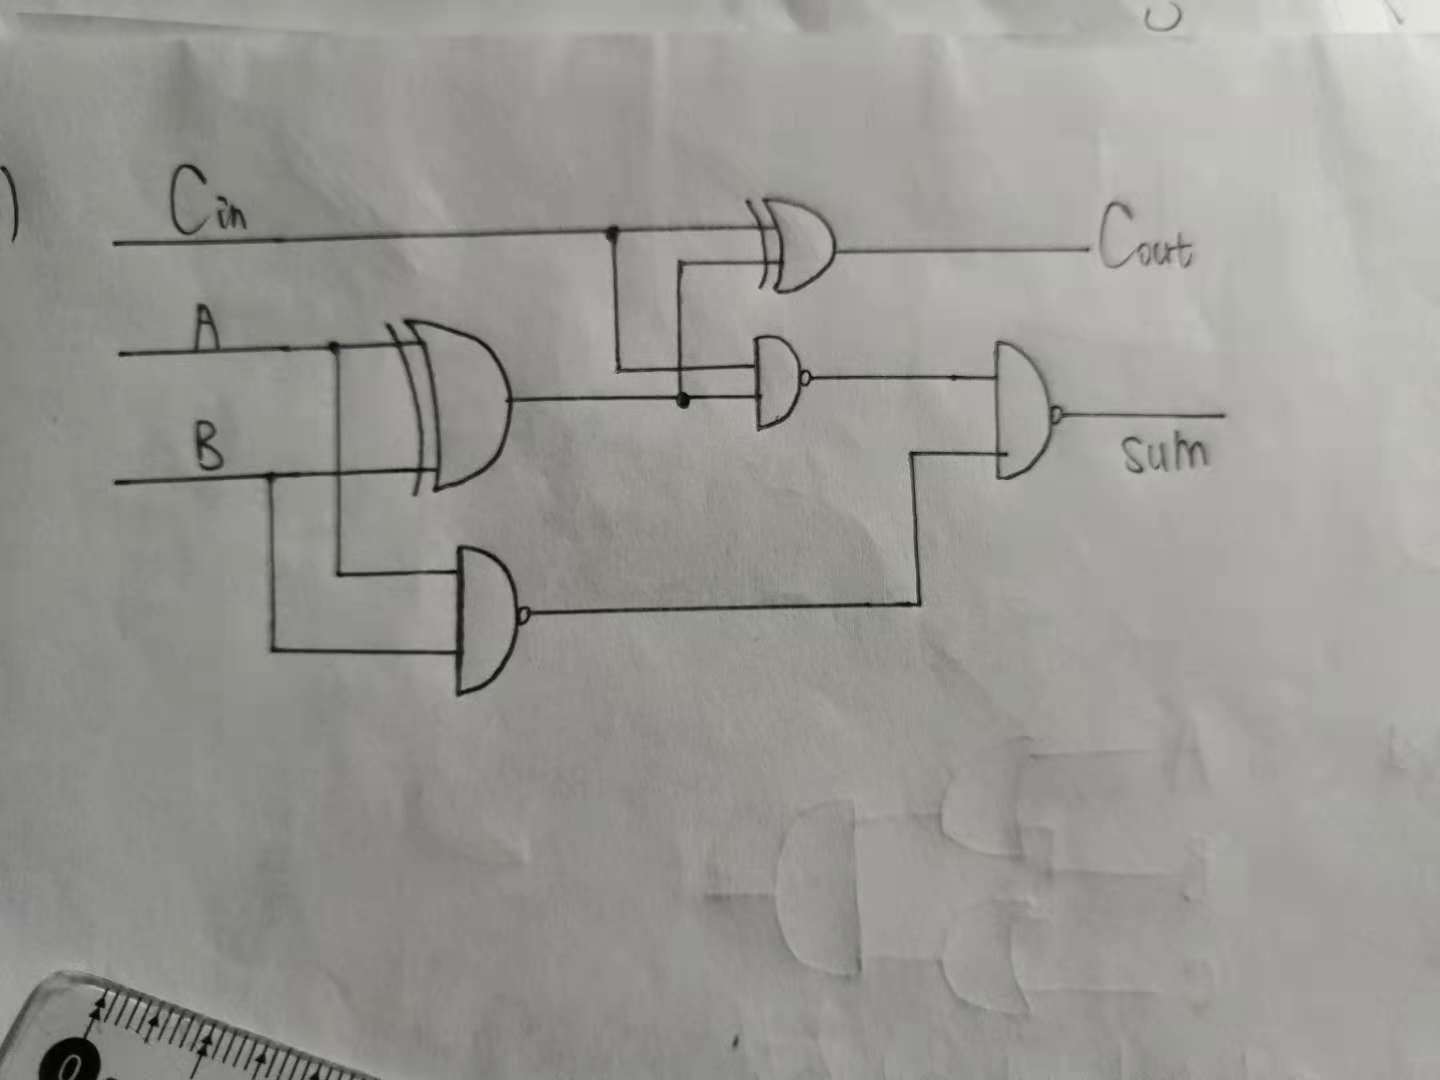 )
Cin
Cout
A
B
sum
0